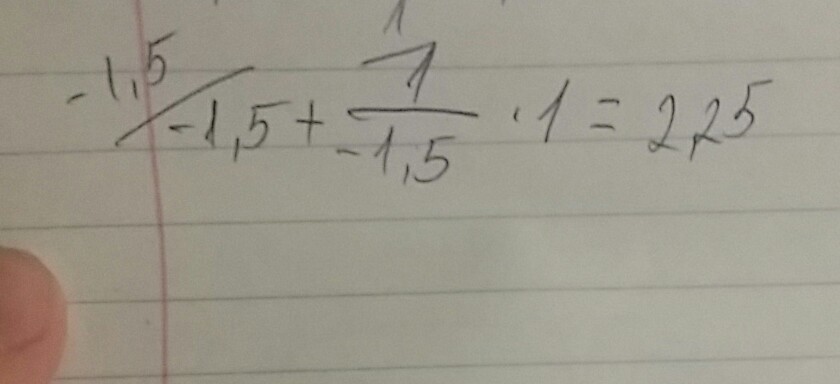 1
-1,5/-1,5 + 1/-1,5 · 1 = 2,25